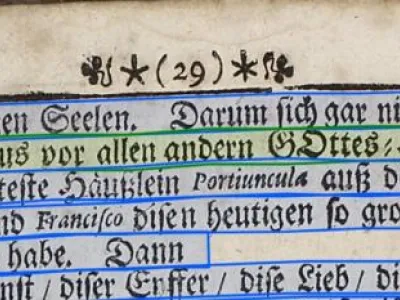 (29)
en Seelen. Darum sich gar ni
us vor allen andern GOttes⸗
teste Häußlein Portiuncula auß d
nd Francisco disen heutigen so gro
habe. Dann
nst / diser Eyffer / dise Lieb / di